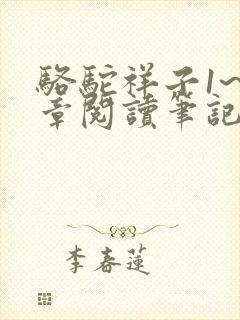 駱駝祥子1~
章閱讀筆記
李春蓮